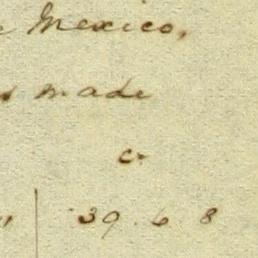 Mexico,
made
cr
" | 39. 6 8